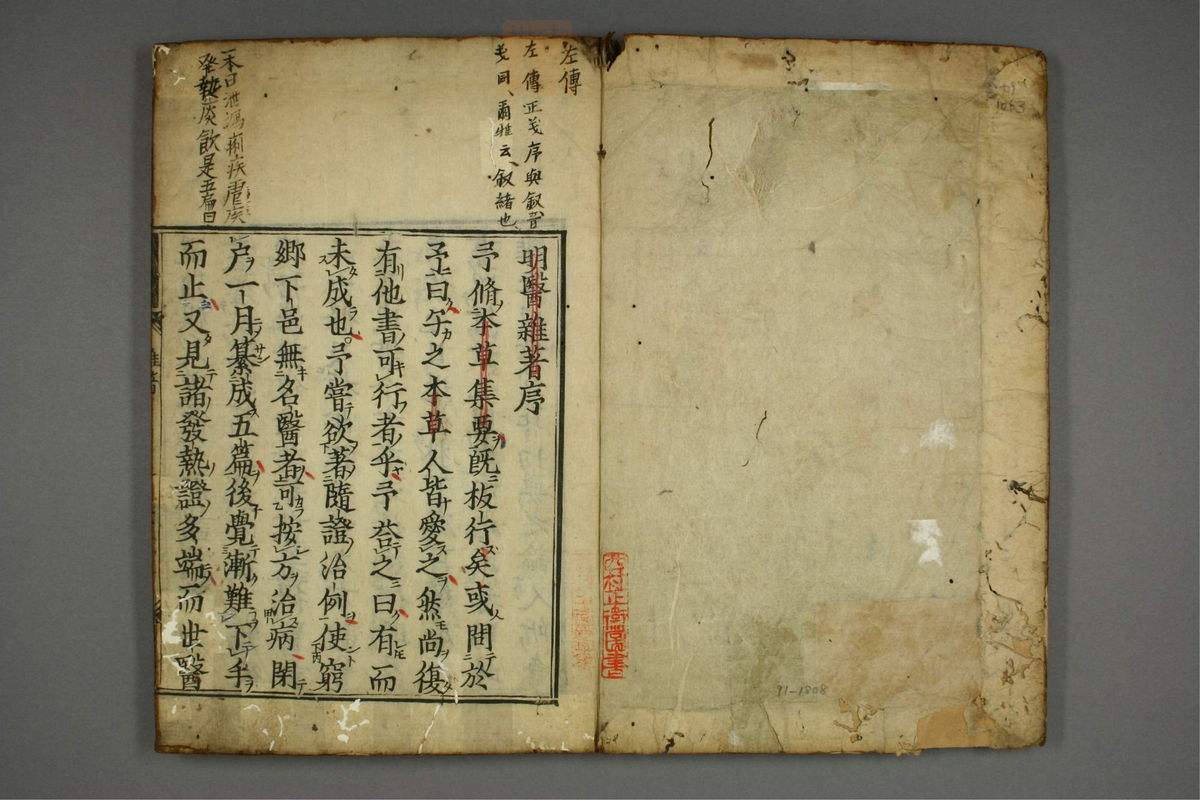 91-1808
左傳
左傳正義序與叙音
義同、爾雅云、叙緒也
明醫雜著序
予脩本草集要既板行矣或問於
予曰午之本草人皆愛之然尚復
有他書可行者乎予荅之曰有而
未成也予嘗欲著隨證治例使窮
鄉下邑無名醫者可按方治病閉
户一月纂成五篇後覺漸難下手
而止又見諸發熱證多端而世醫
一本曰泄瀉痢疾瘧疾
發熱痰飲是五篇曰